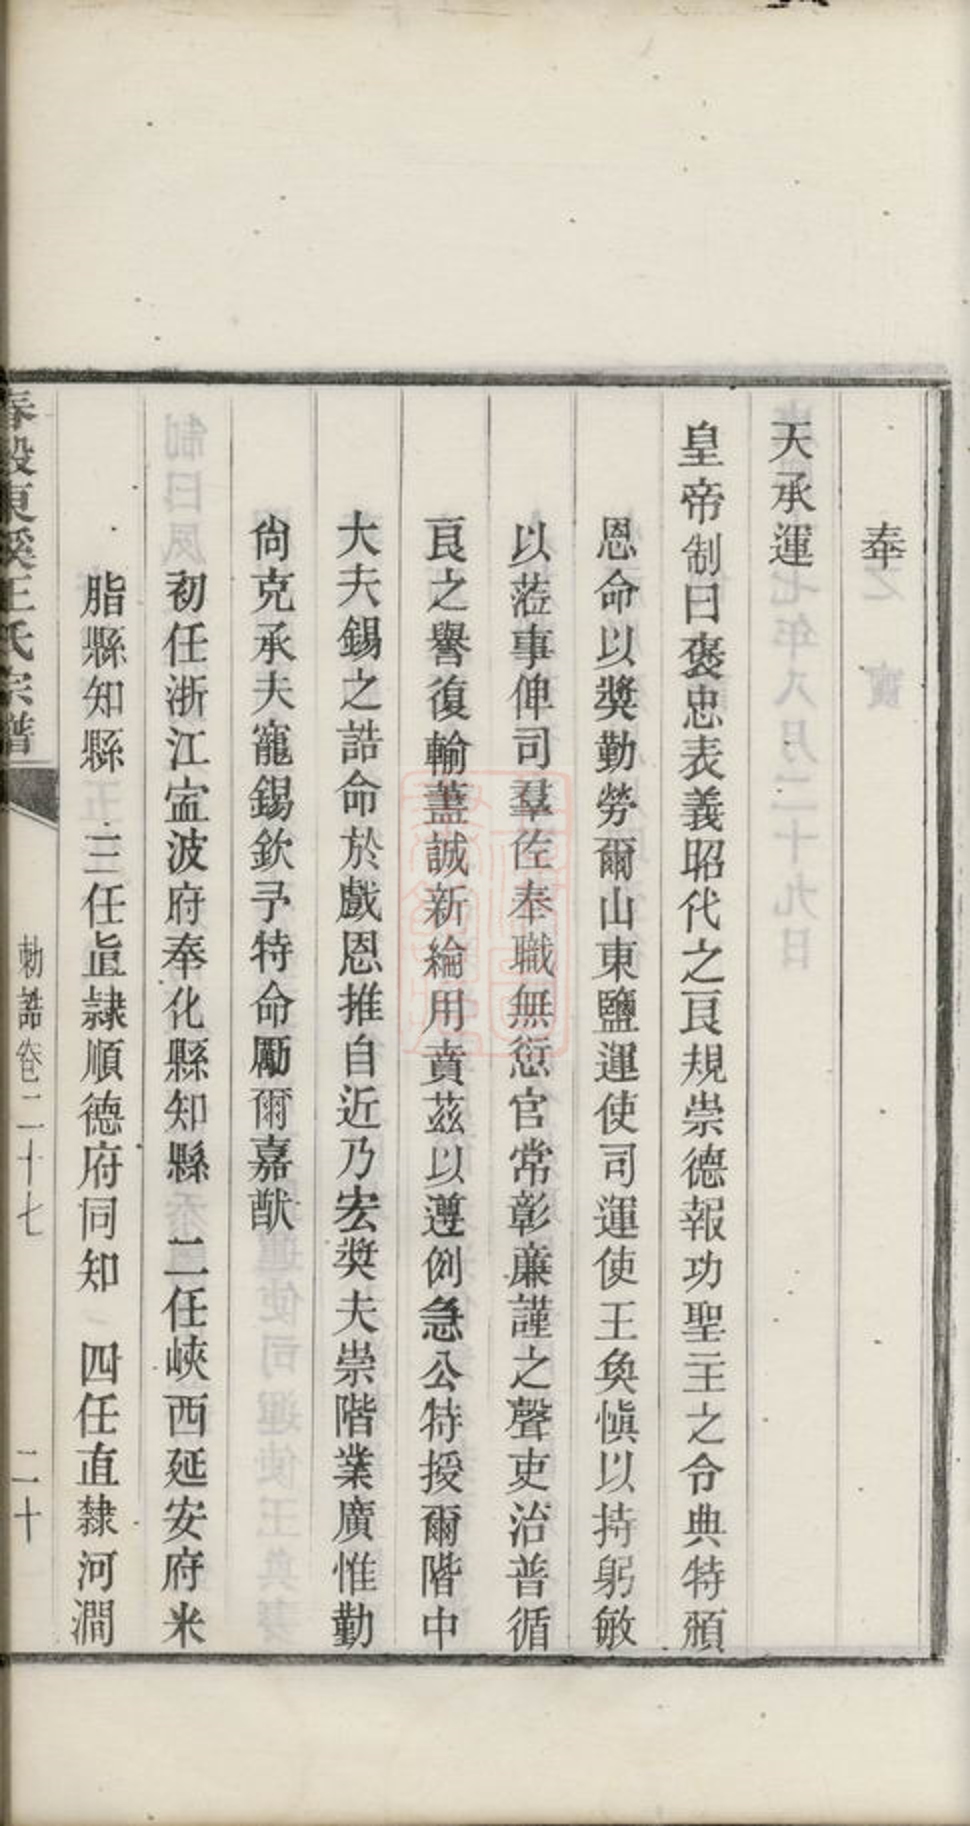 奉
天承運
皇帝制曰褒忠表義昭代之良規崇德報功聖主之令典特頒
恩命以獎勤勞爾山東鹽運使司運使王奐慎以持躬敏
以蒞事俾司羣佐奉職無愆官常彰廉謹之聲吏治普循
良之譽復輸藎誠新綸用賁茲以遵例急公特授爾階中
大夫錫之誥命於戲恩推自近乃宏奬夫崇階業廣惟勤
尙克承夫寵錫欽予特命勵爾嘉猷
初任浙江寍波府奉化縣知縣 二任峽西延安府米
脂縣知縣 三任直隷順德府同知 四任直隸河澗
春穀東溪王氏宗譜
勅誥卷二十七
二十